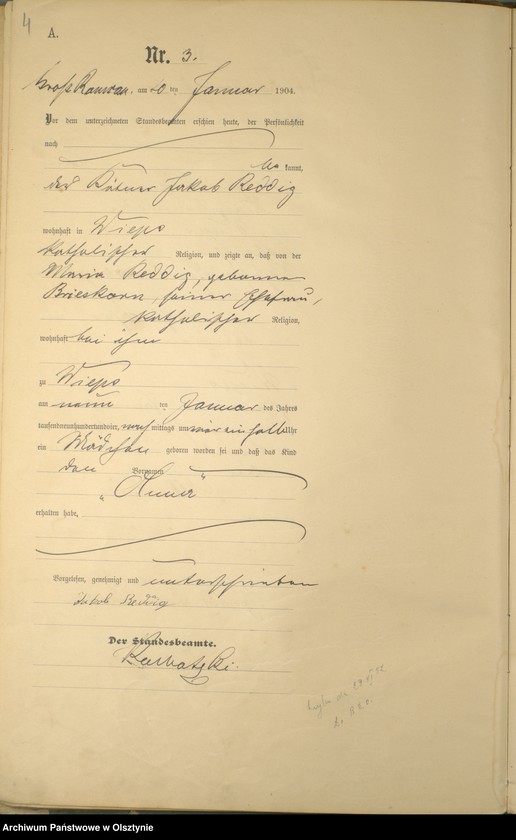 4
A.
Nr. 3.
Groß Ramsau am ten Januar 1904.
Vor dem unterzeichneten Standesbeamten erschien heute, der Persönlichkeit
nach
kannt,
der Kätner Jakob Reddig
wohnhaft in Wieps
katholischer Religion, und zeigte an, daß von der
Maria Reddig, geborenen
Brieskorn, seiner Ehefrau,
katholischer Religion,
wohnhaft bei ihm
zu Wieps
am neun ten Januar des Jahres
tausendneunhundertundvier, nachmittags um ein halb Uhr
ein Mädchen geboren worden sei und daß das Kind
den Vornamen
„Anna"
erhalten habe,
Vorgelesen, genehmigt und unterschrieben
Jakob Reddig
Der Standesbeamte.
Archiwum Państwowe w Olsztynie